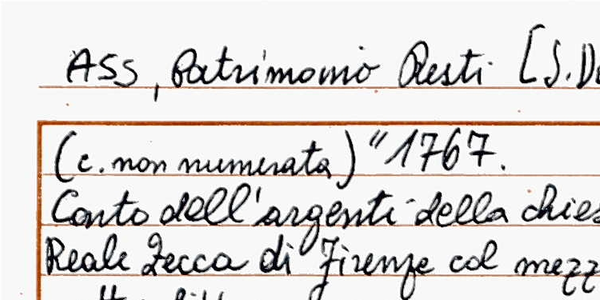 ASS, Patrimonio Resti [S.D
(c. non numerata) "1767.
Conto dell'argenti della chies
Reale Zecca di Firenze col mezz